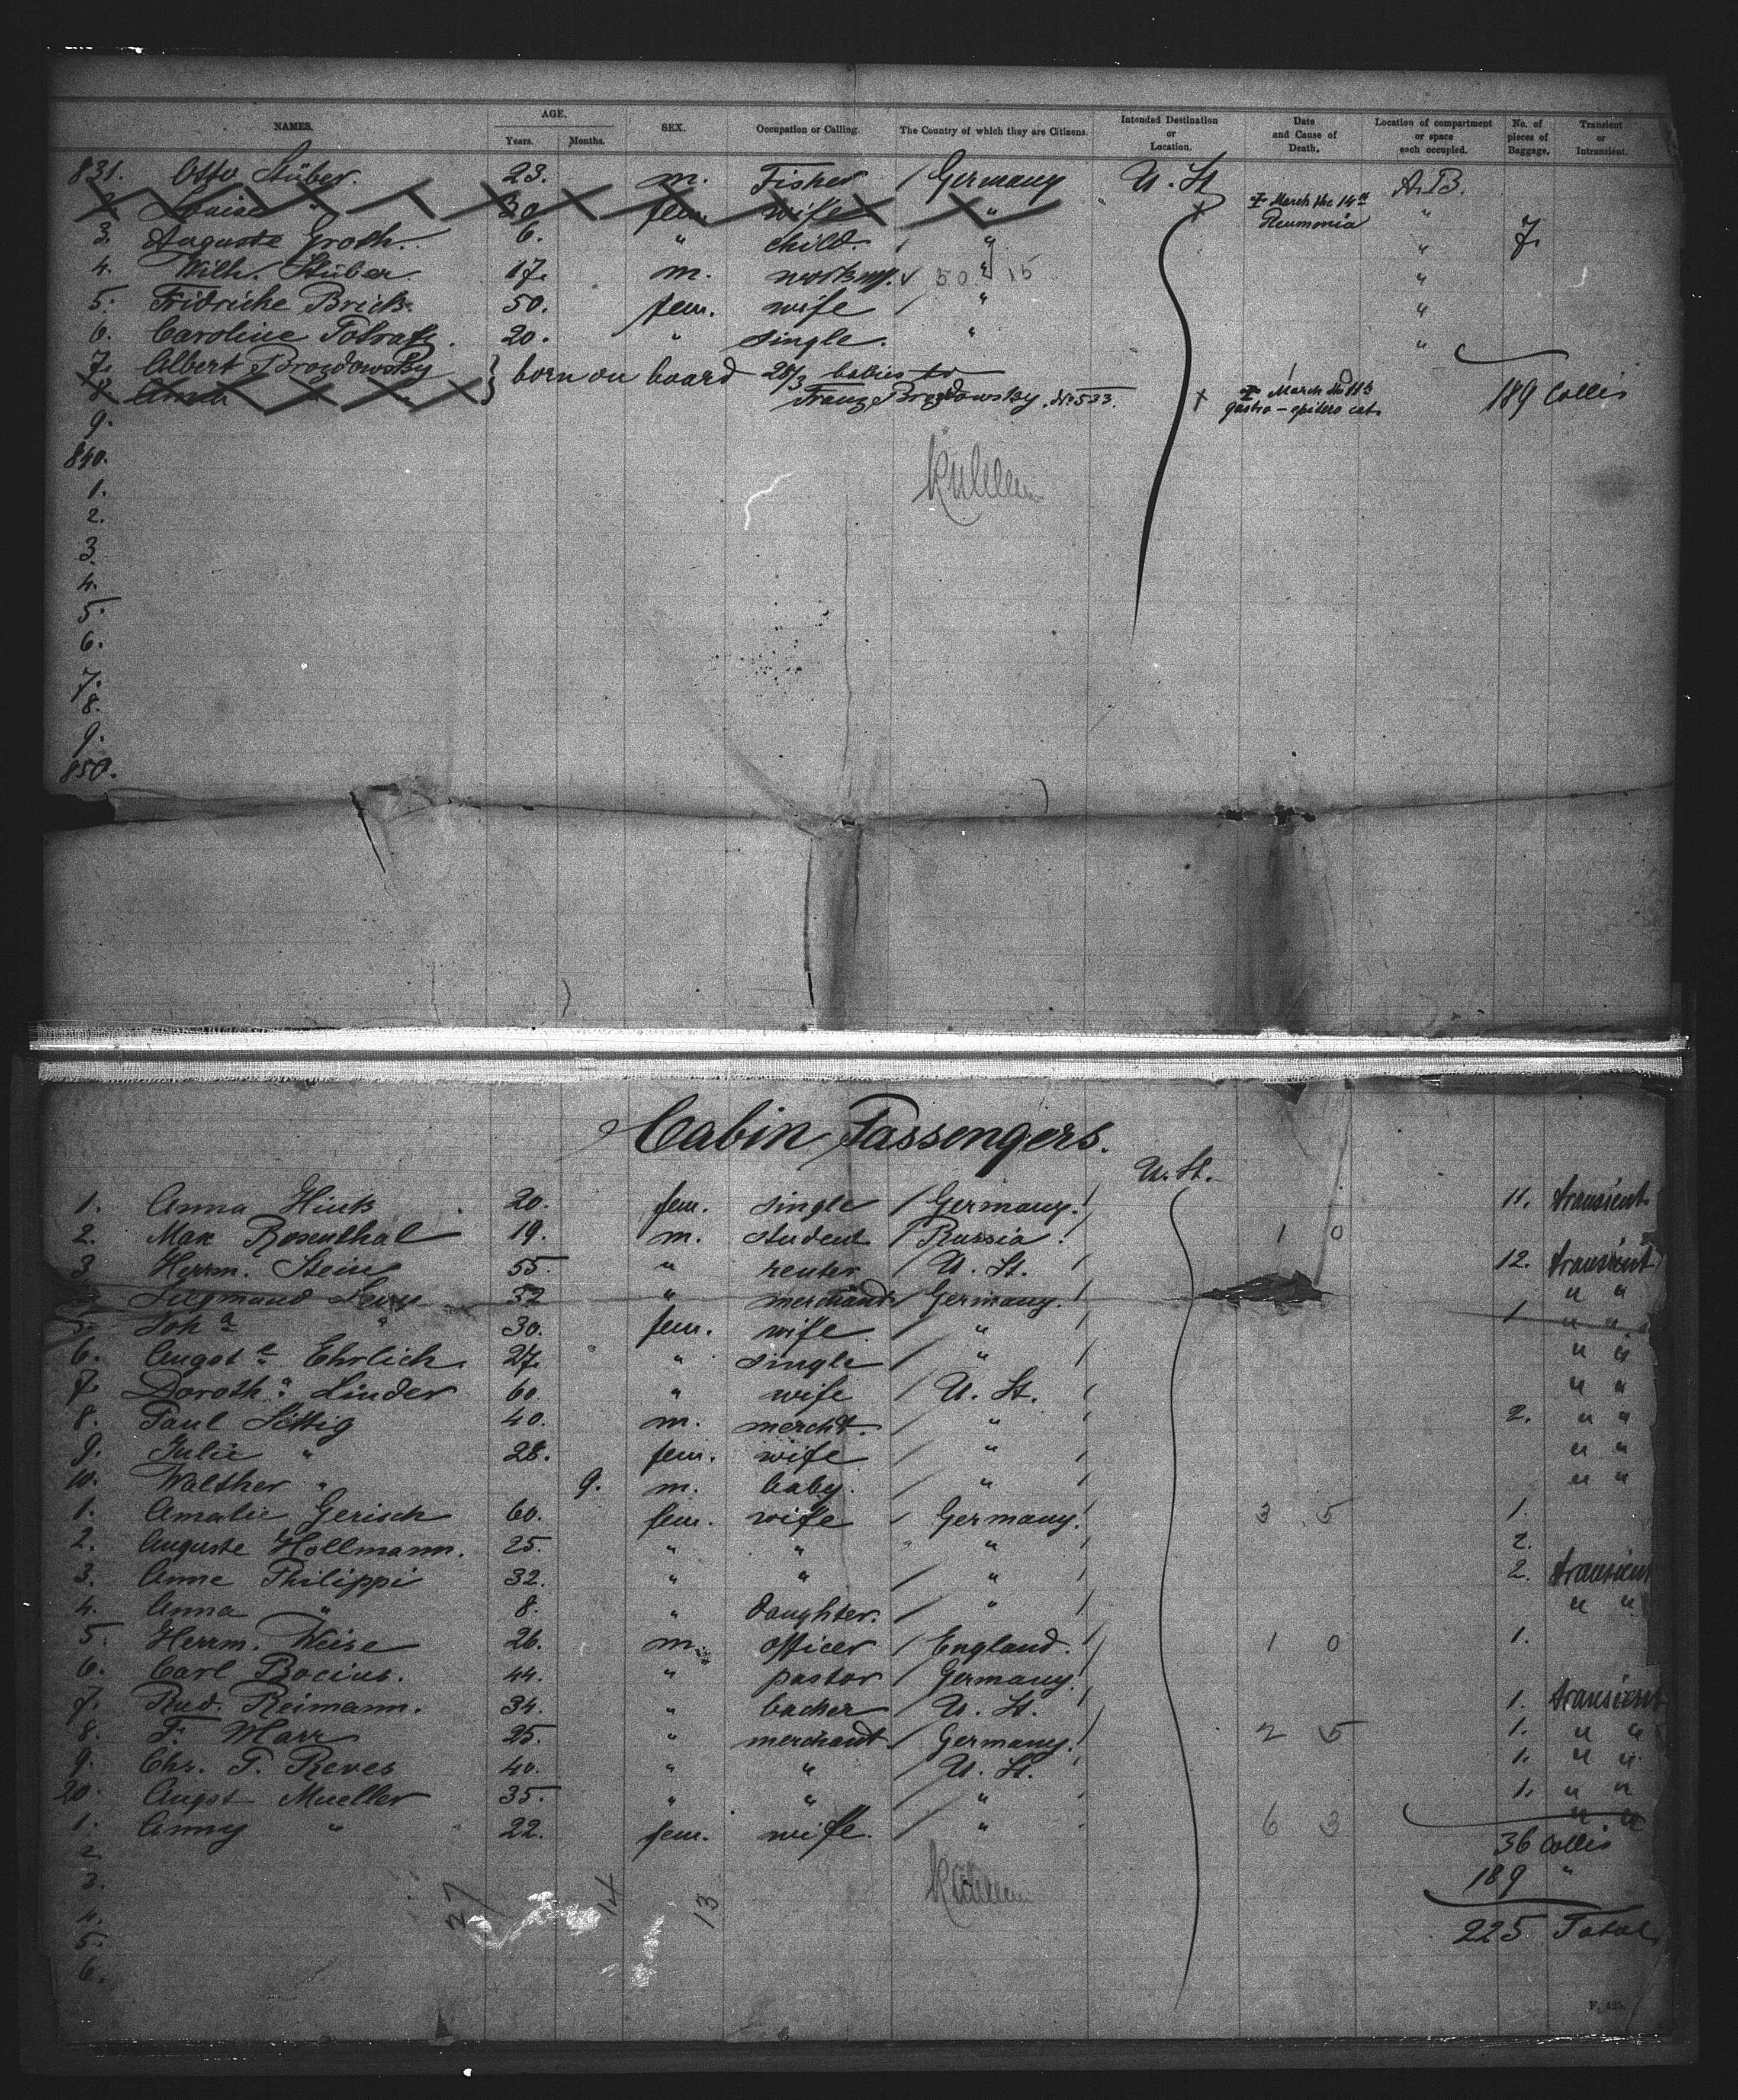 NAMES. AGE. Years. Months. SEX. Occupation or Calling. The Country of which they are Citizens. Intended Destination or Location. Date and Cause of Death. Location of compartment or space each occupied. No. of pieces of Baggage. Transient or Intransient.
831. Otto Stüber. 23. m. Fisher / Germany U. St A.B.
2. Louise " 30. fem. wife " March the 14th Pneumonia "
3. Auguste Groth. 6. " child. " " 7.
4. Wilh. Stüber 17. m. 50 " 15 "
5. Fridricke Brick. 50. fem. wife / " "
6. Caroline 20. " single. " "
7. Albert Brozdowsky } born on board 28/3 babies to
8. " Franz Brozdowsky. No 533. March gastro- 189 Collis
9.
840.
1.
2.
3.
4.
5.
6.
7.
8.
9.
850.
Cabin Passengers.
U. St.
1. Anna Hink 20. fem. single / Germany. 11. transient
2. Max Rosenthal 19. m. student / Russia. 1 0
3. Herrm. Stein 55. " renter / U. St. 12. transient
Siegmund Levy 32 " merchand / Germany. " "
5. Joh.a " 30. fem. wife. / " 1 " "
6. Augste Ehrlich. 27. " single / " " "
7. Doroth.a Linder 60. " wife / U. St. " "
8. Paul Sittig 40. m. mercht. / " 2. " "
9. Julie " 28. fem. wife / " " "
10. Walther " 9. m. baby. / " " "
1. Amalie Gerisch 60. fem. wife / Germany. 3 5 1.
2. Auguste Hollmann. 25. " " " 2.
3. Anne Philippi 32. " " / " 2. transient
4. Anna " 8. " daughter. / " " "
5. Herrm. Weise 26. m. officer / England. 1 0 1.
6. Carl Bocius. 44. " pastor / Germany.
7. Rud. Reimann. 34. " backer / U. St. 1. transient
8. F. Marr 25. " merchant / Germany. 2 5 1. " "
9. Chr. F. Reves 40. " " / U. St. 1. " "
20. Augst Mueller 35. " " / " 1. " "
1. Anny " 22. fem. wife. / " 6 3 " "
2. 36 Collis
3. 189 "
27 14 13
4. 225 Total.
5.
6.
F. 425.